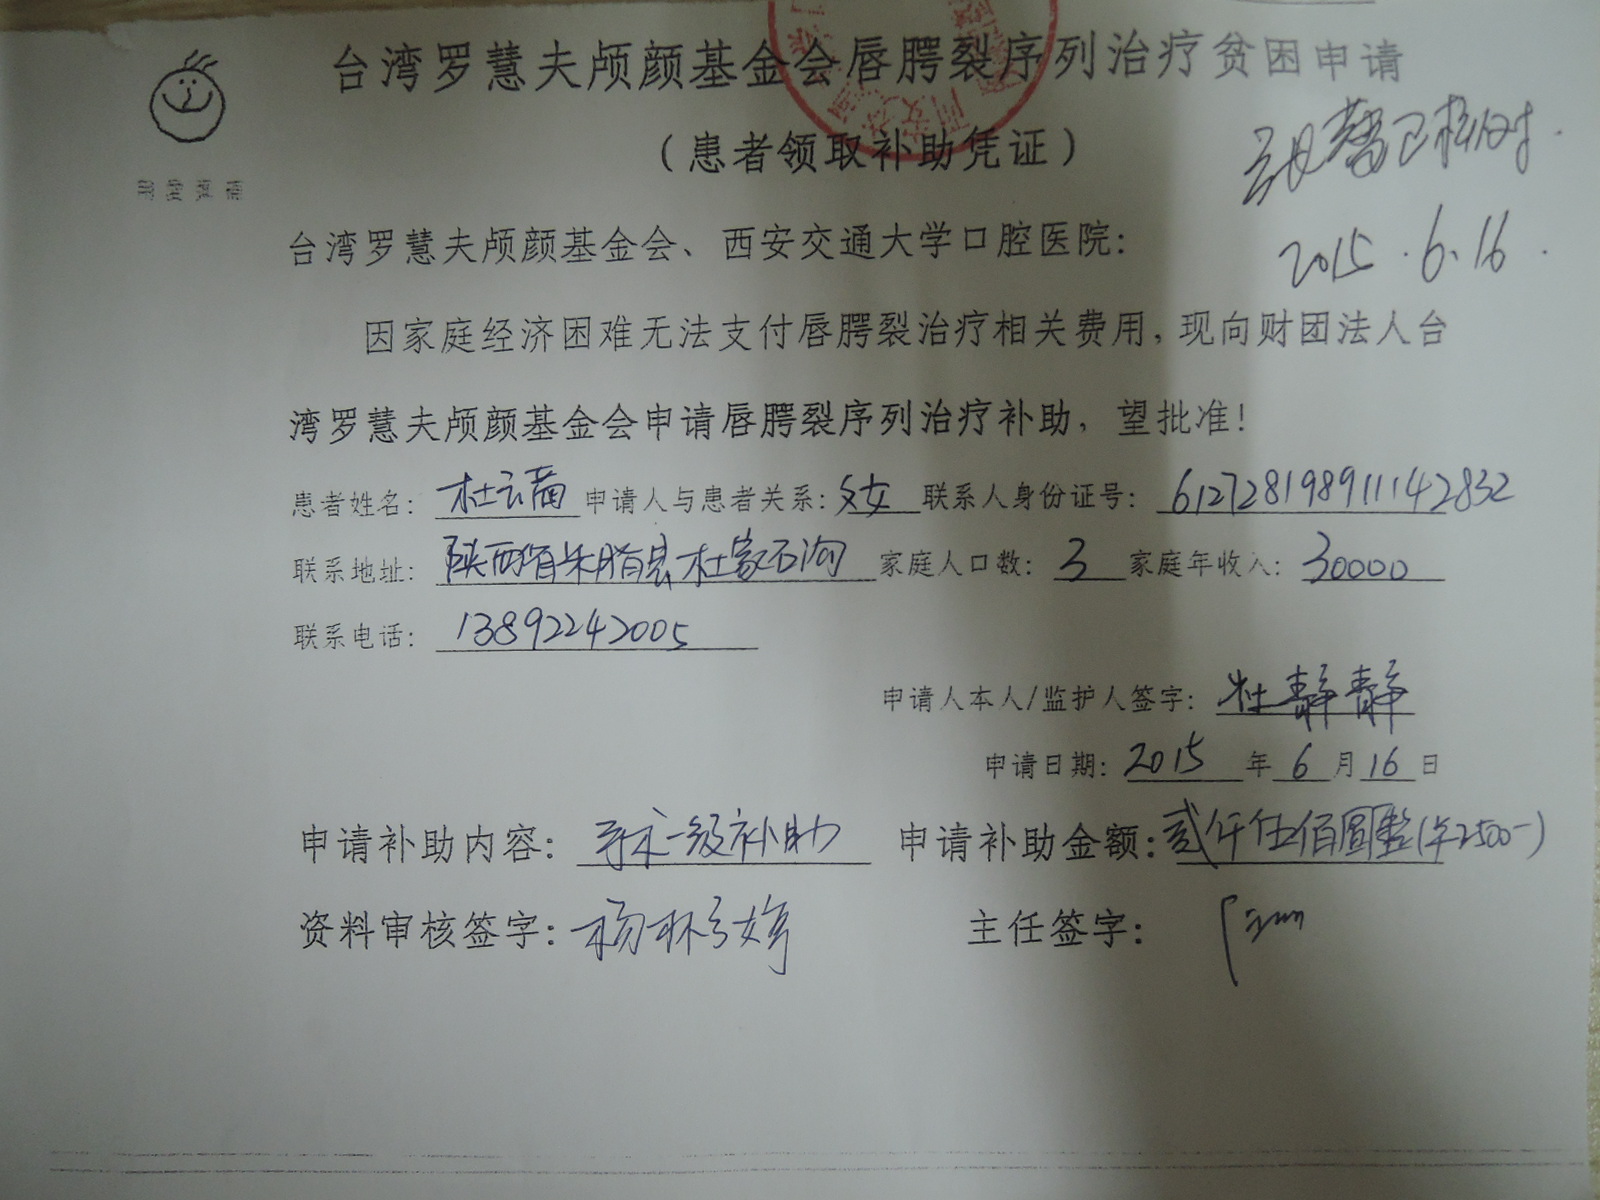 台湾罗慧夫颅颜基金会唇腭裂序列治疗贫困申请
（患者领取补助凭证）
已核对.
2015.6.16.
台湾罗慧夫颅颜基金会、西安交通大学口腔医院：
因家庭经济困难无法支付唇腭裂治疗相关费用，现向财团法人台
湾罗慧夫颅颜基金会申请唇腭裂序列治疗补助，望批准！
患者姓名：杜云菡 申请人与患者关系：父女 联系人身份证号：612728198911142832
联系地址：陕西省米脂县杜家石沟 家庭人口数：3 家庭年收入：30000
联系电话：13892242005
申请人本人/监护人签字：杜静静
申请日期：2015年6月16日
申请补助内容：手术一级补助 申请补助金额：贰仟伍佰圆整(¥2500-)
资料审核签字：杨 婷 主任签字：